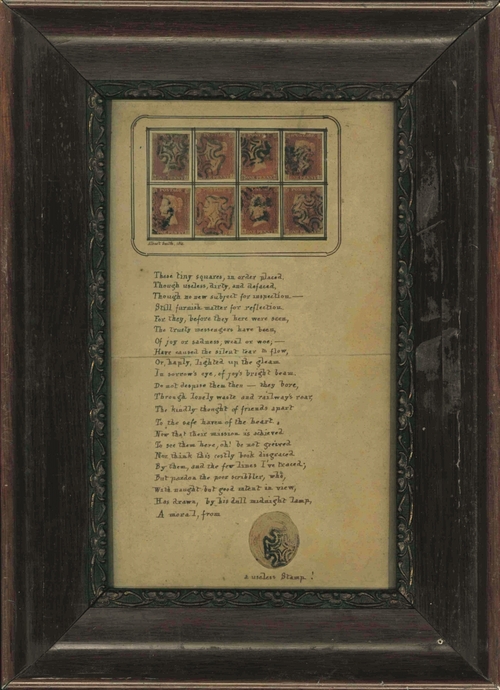 These tiny squares, in order placed,
Though useless, dirty, and defaced,
Though no new subject for inspection —
Still furnish matter for reflection.
For they, before they here were seen,
The trusty messengers have been,
Of joy or sadness, weal or woe; —
Have caused the silent tear to flow,
Or, haply, lighted up the gleam
In sorrow's eye, of joy's bright beam.
Do not despise them then — they bore,
Through lonely waste and railway's roar,
The kindly thought of friends apart
To the safe haven of the heart.
Now that their mission is achieved
To see them here, oh! be not grieved
Nor think this costly book disgraced
By them, and the few lines I've traced;
But pardon the poor scribbler, who,
With nought but good intent in view,
Has drawn, by his dull midnight lamp,
A moral, from
a useless Stamp!